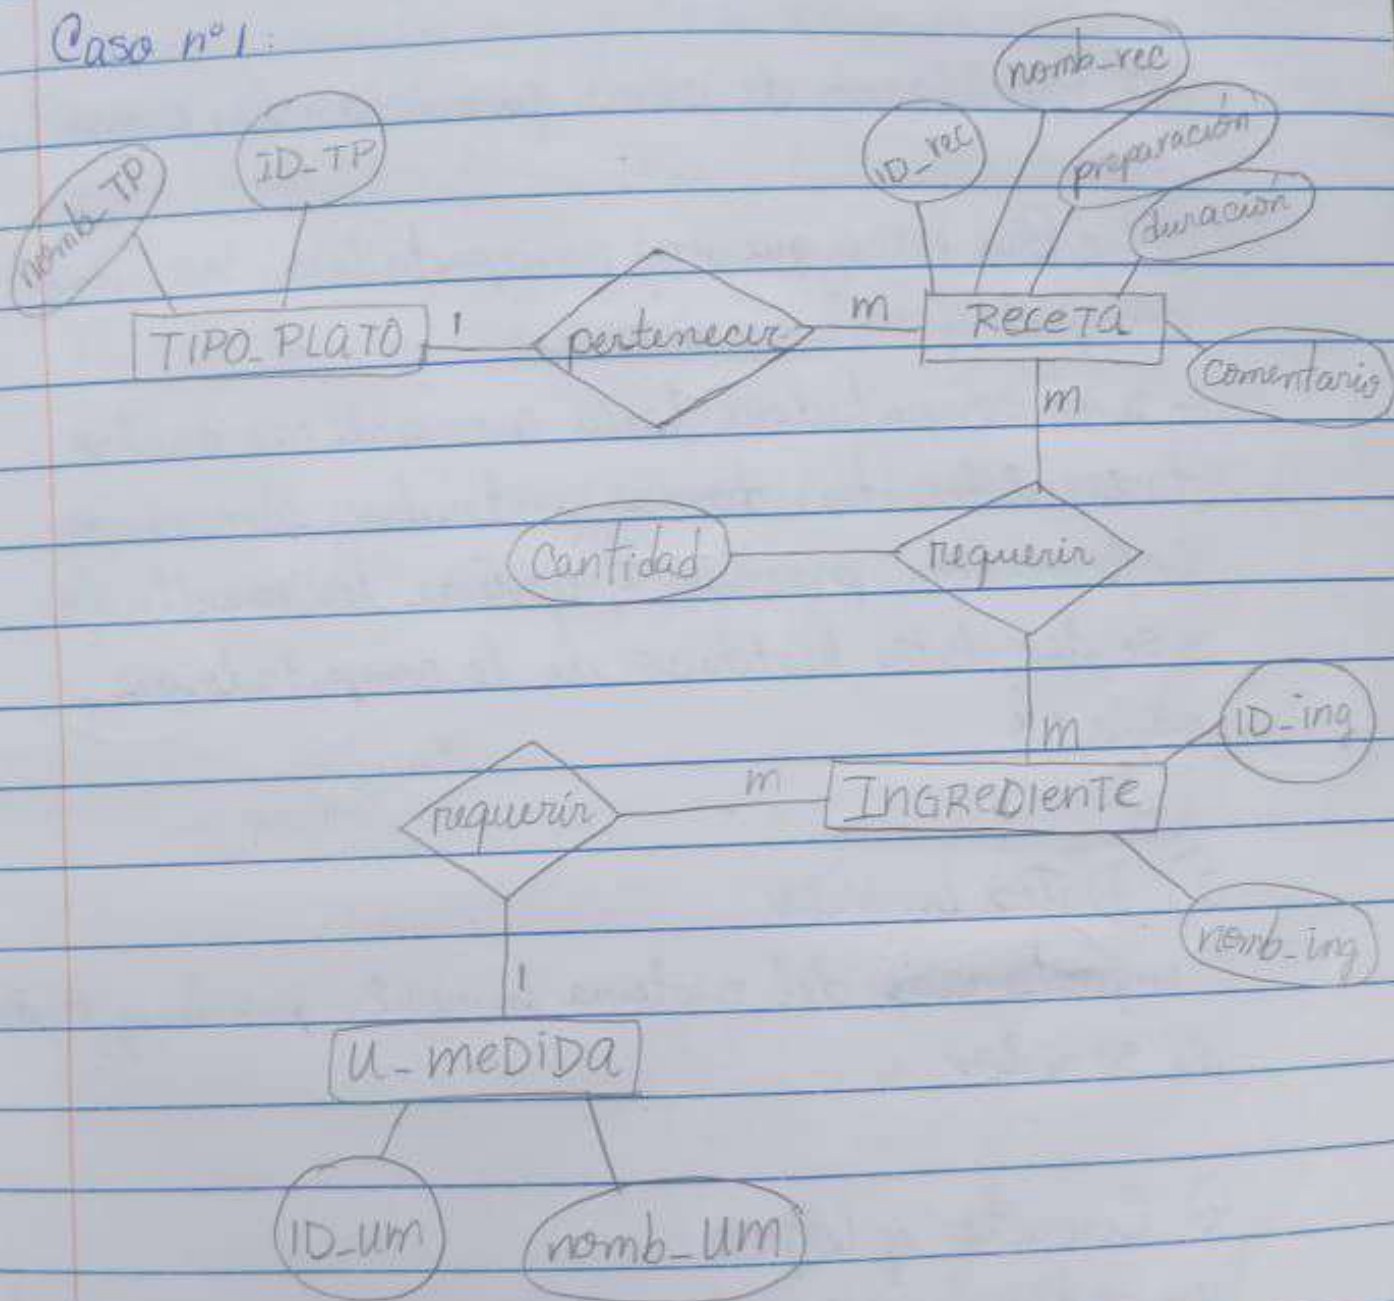 Caso n° 1:
nomb_rec
ID_TP
ID_rec
preparación
nomb_TP
duración
TIPO_PLATO
1
pertenecer
m
RECETA
comentario
m
Cantidad
requerir
m
ID_ing
requerir
m
INGREDIENTE
nomb_ing
1
U_MEDIDA
ID_UM
nomb_UM